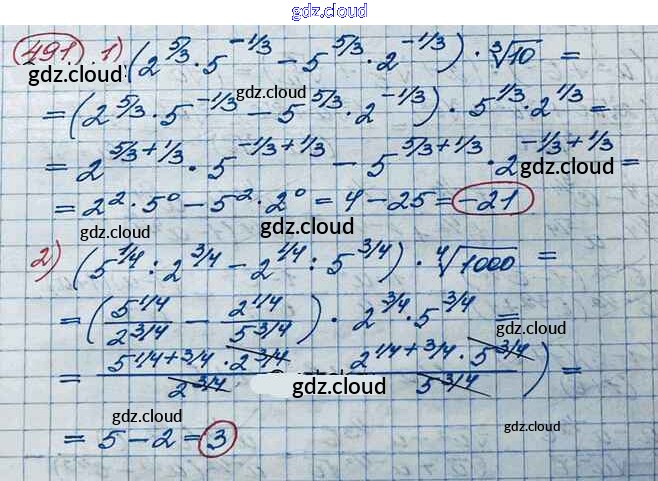 gdz.cloud
491. 1) (2^5/3 · 5^-1/3 - 5^5/3 · 2^-1/3) · ∛10 =
gdz.cloud gdz.cloud
= (2^5/3 · 5^-1/3 - 5^5/3 · 2^-1/3) · 5^1/3 · 2^1/3 =
gdz.cloud
= 2^5/3+1/3 · 5^-1/3+1/3 - 5^5/3+1/3 · 2^-1/3+1/3 =
gdz.cloud
= 2² · 5⁰ - 5² · 2⁰ = 4 - 25 = -21
gdz.cloud gdz.cloud
2) (5^1/4 : 2^3/4 - 2^1/4 : 5^3/4) · ∜1000 =
= (5^1/4 / 2^3/4 - 2^1/4 / 5^3/4) · 2^3/4 · 5^3/4 =
gdz.cloud
= 5^1/4+3/4 · 2^3/4 / 2^3/4 2^1/4+3/4 · 5^3/4 / 5^3/4) =
gdz.cloud
gdz.cloud gdz.cloud
= 5 - 2 = 3